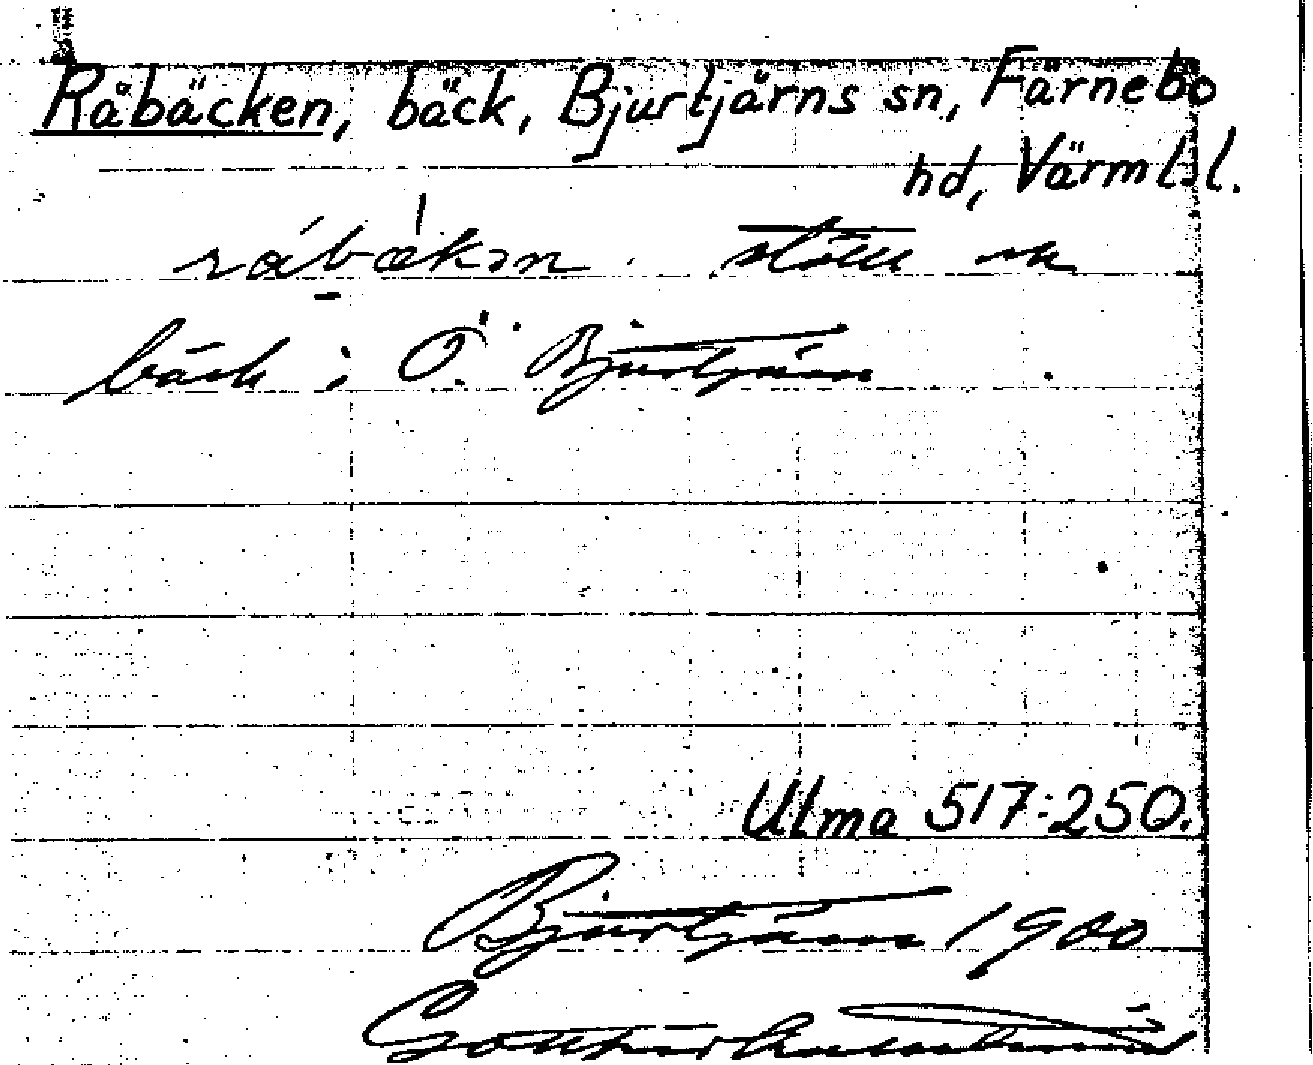 Råbäcken, bäck, Bjurtjärns sn, Färnebo
hd, Värml. l.
råbækən större
bäck i Ö. Bjurtjärn
Ulma 517:250.
Bjurtjärn 1900